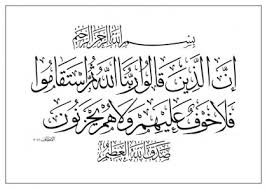 بسم الله الرحمن الرحيم
إِنَّ الَّذِينَ قَالُوا رَبُّنَا اللَّهُ ثُمَّ اسْتَقَامُوا
فَلَا خَوْفٌ عَلَيْهِمْ وَلَا هُمْ يَحْزَنُونَ
صدق الله العظيم